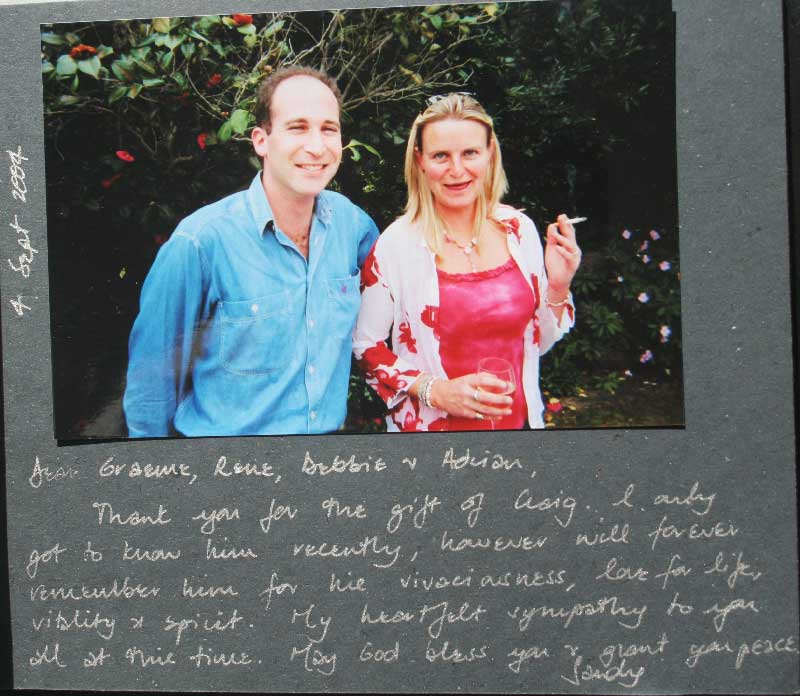 4 Sept 2004
Dear Graeme, Rene, Debbie & Adrian,
Thank you for the gift of Craig. I only
got to know him recently, however will forever
remember him for his vivaciousness, love for life,
vitality & spirit. My heartfelt sympathy to you
all at this time. May God bless you & grant you peace.
Sandy